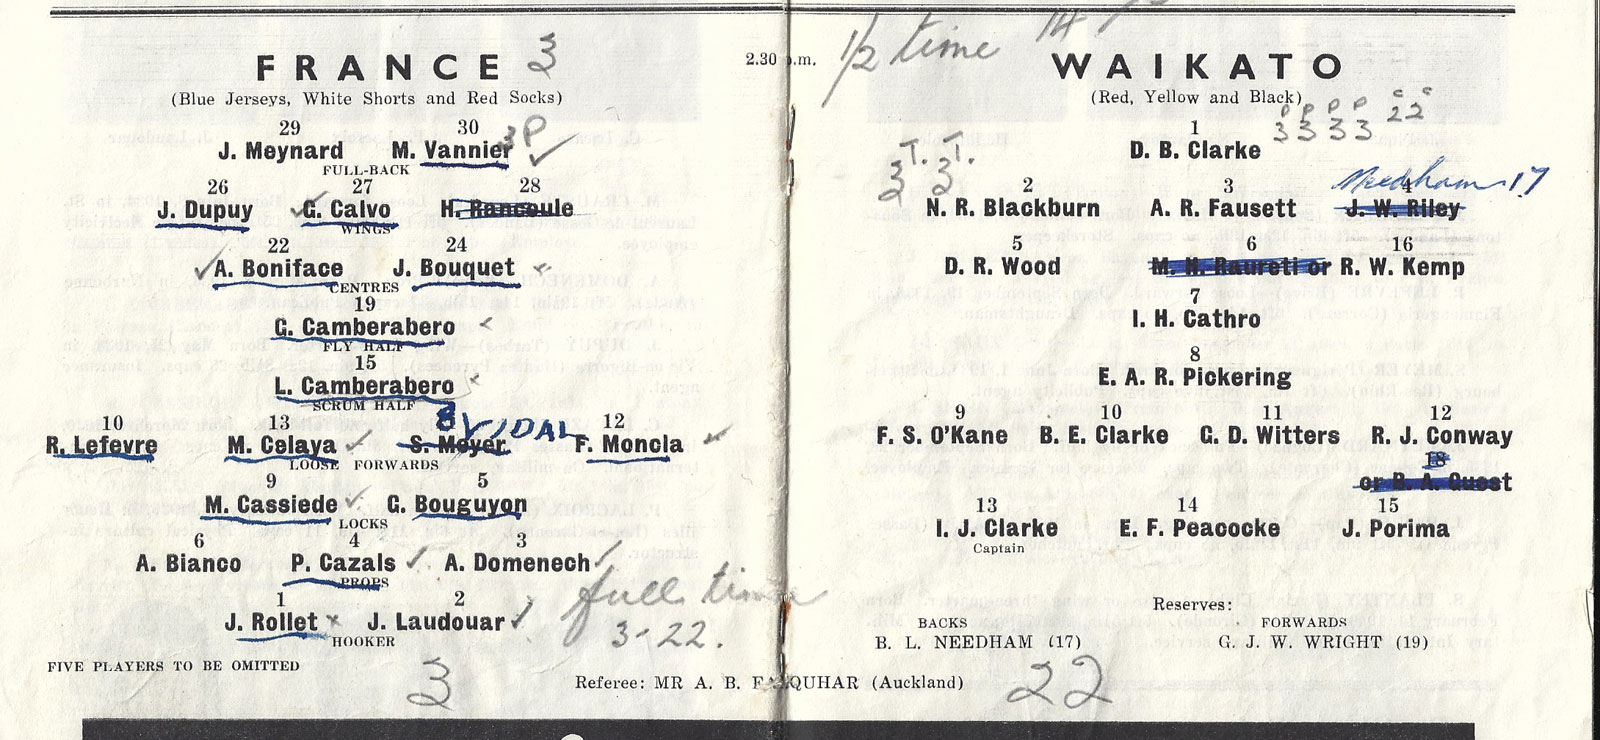 FRANCE 3
(Blue Jerseys, White Shorts and Red Socks)
29 30
J. Meynard M. Vannier 3 P
FULL-BACK
26 27 28
J. Dupuy G. Calvo H. Rancoule
WINGS
22 24
A. Boniface J. Bouquet
CENTRES
19
G. Camberabero
FLY HALF
15
L. Camberabero
SCRUM HALF
10 13 8 VIDAL 12
R. Lefevre M. Celaya S. Meyer F. Moncla
LOOSE FORWARDS
9 5
M. Cassiede C. Bouguyon
LOCKS
6 4 3
A. Bianco P. Cazals A. Domenech
PROPS
1 2
J. Rollet J. Laudouar
HOOKER
FIVE PLAYERS TO BE OMITTED
3
full time
3-22.
2.30 p.m.
1/2 time 14
WAIKATO
(Red, Yellow and Black)
P P P P c c
3 3 3 3 2 2
1
D. B. Clarke
T. T.
3 3
Needham 17
2 3 4
N. R. Blackburn A. R. Fausett J. W. Riley
5 6 16
D. R. Wood M. N. Raureti or R. W. Kemp
7
I. H. Cathro
8
E. A. R. Pickering
9 10 11 12
F. S. O'Kane B. E. Clarke C. D. Witters R. J. Conway
18
or B. A. Guest
13 14 15
I. J. Clarke E. F. Peacocke J. Porima
Captain
Reserves:
BACKS FORWARDS
B. L. NEEDHAM (17) G. J. W. WRIGHT (19)
22
Referee: MR A. B. FARQUHAR (Auckland)